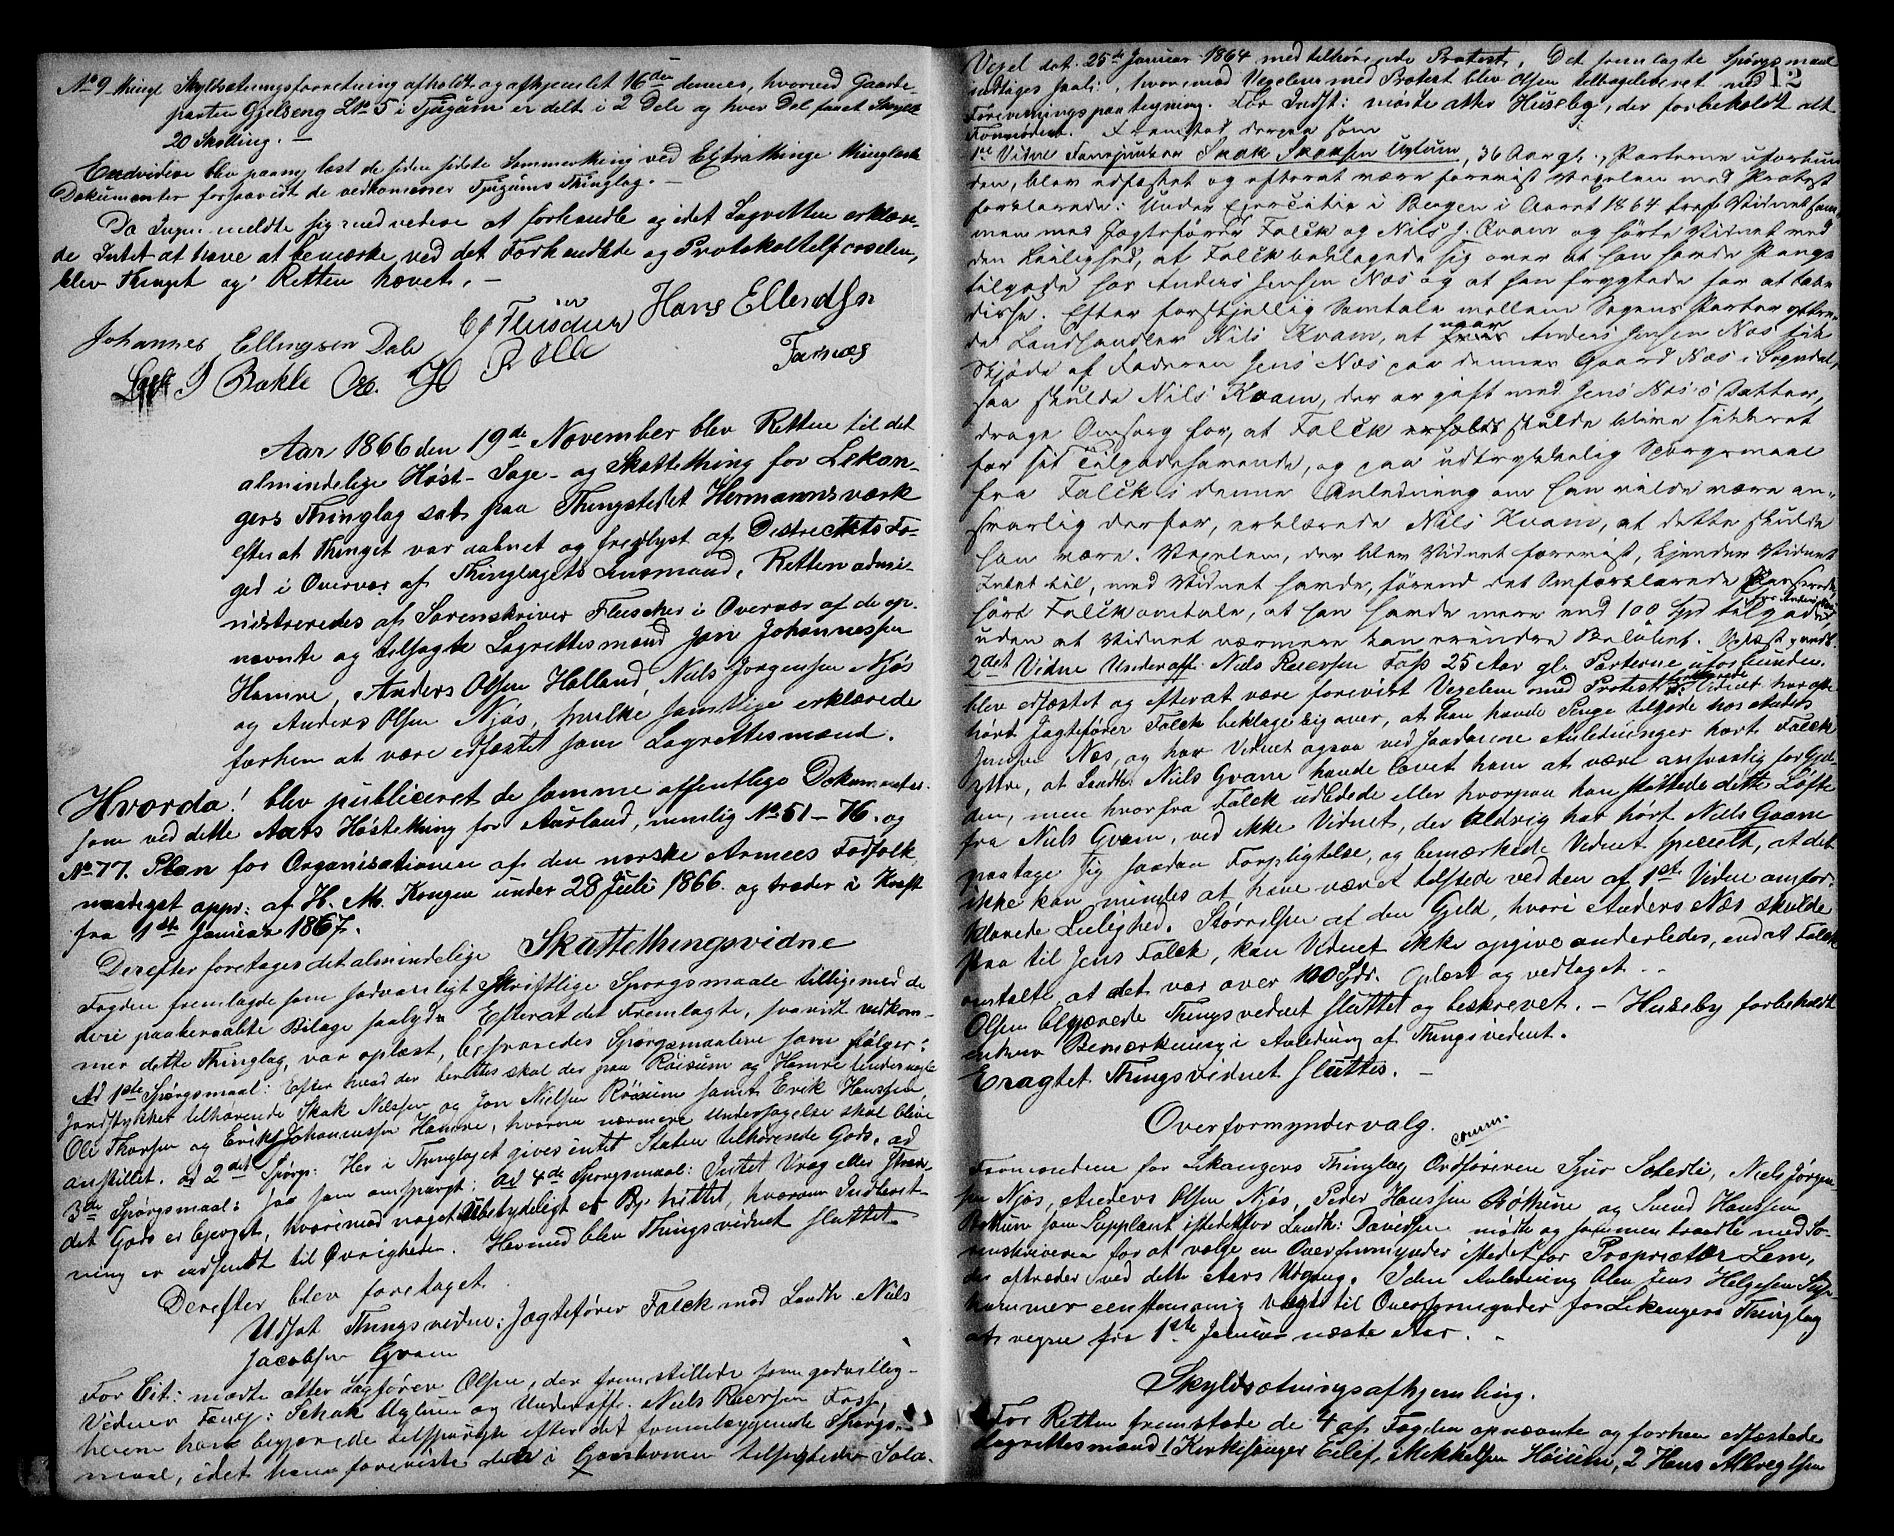 No 9 thingl Skyldsætningsforretning afholdt og afhjemlet 16de dennes, hvorved Gaarde-
parten Gjelseng LNo 5 i Tjugum er delt i 2 Dele og hver Del faaet Skyld
20 Skilling. —
Endvidere blev paany læst de siden sidste Sommerthing ved Extrathinge thinglæste
Dokumenter forsaavidt de vedkommer Tjugums Thinglag. —
Da Ingen meldte sig med videre at forhandle og idet Lagretten erklæ-
de Intet at have at bemærke ved det Forhandlede og Protokoltilførselen,
blev Thinget og Retten hævet. —
Fleischer Hans Ellendsen
Johannes Ellingsen Dale
Farnæs
J Bøkle
Aar 1866 den 19de November blev Retten til det
almindelige Høst- Sage- og Skattething for Lekan-
gers Thinglag sat paa Thingstedet Hermannsværk
efterat Thinget var aabnet og fredlyst af Districtets Fo-
ged i Overvær af Thinglagets Lensmand. Retten admi-
nistreredes af Sorenskriver Fleischer i Overvær af de op-
nævnte og tilsagte Lagrettesmænd Jon Johannesen
Hamre, Anders Olsen Halland, Niels Jørgensen Njøs
og Anders Olsen Njøs, hvilke samtlige erklærede
forhen at være edfæstet som Lagrettesmænd.
Hvorda! blev publiceret de samme offentlige Dokumenter
som ved dette Aars Høstething for Aurland, nemlig No 51 – 76. og
No 77. Plan for Organisationen af den norske Armees Fodfolk
naadigst appr: af H. M. Kongen under 28 Juli 1866. og træder i Kraft
fra 1ste Januar 1867.
Derefter foretages det almindelige Skattethingsvidne
Fogden fremlagde som sædvanligt Skriftlige Spørgsmaale tilligemed de
deri paaberaabte Bilage saalydn Efterat det Fremlagte, saavidt vedkom-
mer dette Thinglag, var oplæst, besvaredes Spørgsmaalene som følger:
Ad 1ste Spørgsmaal: Efter hvad der berettes skal der paa Røisum og Hamre findes nogle
Jordstykker tilhørende Skak Nilssen og Jon Nielsen Røisum samt Erik Hanssen,
Ole Thorsen og Erik Johannesen Hamre, hvorom nærmere Undersøgelse skal blive
anstillet. ad 2det Spørg: Her i Thinglaget gives intet Staten tilhørende Gods. ad
3de Spørgsmaal: Jaa som omspurgt; ad 4de Spørgsmaal: Intet Vrag eller Stran-
det Gods er bjerget, hvorimod noget Ubetydeligt er By hittet, hvorom Indberet-
ning er indsendt til Øvrigheden. Hermed blev Thingsvidnet sluttet.
Derefter blev foretaget
Udsat Thingsvidne: Jagtefører Falck mod Landh. Niels
Jacobsen Qvam
For Cit: mødte atter Sagfører Olsen, der fremstillede som godvillig-
Vidner Fanej: Schak Uglum og Underoff. Niels Roersen Foss,
hvem han begjærede tilspurgt efter det fremlæggende Spørgs-
maal, idet han foreviste den i Gaarsdommen tilsigtede Sola-
12
Vexel dat: 25de Januar 1864 med tilhørende Protest. Det fremlagte Spørgsmaal
indtages saal:, hvorimod Vexelen med Protest blev Olsen tilbageleveret med
Forevisningspaategning. For Indst: mødte atter Huseby, der forbeholdt alt
Fornødent. Fremstod derpaa som
1ste Vidne Fanejunker Skak Skaksen Uglum, 36 Aar gl., Parterne uforbun-
den, blev edfæstet og efterat være forevist Vexelen med Protest
forklarede: Under Exercitie i Bergen i Aaret 1864 traf Vidnet sam-
men med Jagtefører Falck og Nils J. Qvam og hørte Vidnet ved
den Leilighed, at Falck beklagede sig over at han havde Penge
tilgode hos Anders Jensen Næs og at han frygtede for at tabe
disse. Efter forskjellig Samtale mellem Sagens Parter yttre-
de Landhandler Nils Kvam, at naar Anders Jensen Næs fik
Skjøde af Faderen Jens Næs paa dennes Gaard Næs i Sogndal,
saa skulde Nils Kvam, der er gift med Jens Næs's Datter,
drage Omsorg for, at Falck skulde blive sikkeret
for sit Tilgodehavende, og paa udtrykkelig Spørgsmaal
fra Falck i denne Anledning om han vilde være an-
svarlig derfor, erklærede Nils Kvam, at dette skulde
han være. Vexelen, der blev Vidnet forevist, kjender Vidnet
Intet til, med Vidnet havde, førend det Omforklarede passerede,
hørt Falck omtale, at han havde mere end 100 Spd tilgode hos Anders Næs
uden at Vidnet nærmere kan erindre Beløbet. Oplæst, vedt.
2det Vidne Underoff. Niels Roersen Foss 25 Aar gl. Parterne uforbunden
blev edfæstet og efterat være forevist Vexelen med Protest forklarede: Vidnet har ofte
hørt Jagtefører Falck beklage sig over, at han havde Penge tilgode hos Anders
Jensen Næs, og har Vidnet ogsaa ved saadanne Anledninger hørt Falck
yttre, at Landh. Niels Qvam havde lovet ham at være ansvarlig for Gjæl-
den, men hvorfra Falck udledede eller hvorpaa han støttede dette Løfte
fra Niels Qvam, ved ikke Vidnet, der aldrig har hørt Niels Qvam
paatage sig saadan Forpligtelse, og bemærkede Vidnet specielt, at det
ikke kan mindes at have været tilstede ved den af 1ste Vidne omfor-
klarede Leilighed. Størrelsen af den Gjeld, hvori Anders Næs skulde
staa til Jens Falck, kan Vidnet ikke opgive anderledes, end at Falck
omtalte, at det var over 100 Spd. Oplæst og vedtaget. -
Olsen begjærede Thingsvidnet sluttet og beskrevet. — Huseby forbeholdt
enhver Bemærkning i Anledning af Thingsvidnet.
Eragtet Thingsvidnet sluttes. —
Overformyndervalg.
Formændene for Lekangers Thinglag Ordføreren Sjur Saterli, Niels Jørgen-
sen Njøs, Anders Olsen Njøs, Peder Hanssen Bøthun og Svend Hanssen
comm:
Bøthun som Supplant istedetfor Landh: Davidsen mødte og sammentraadte med So-
renskriveren for at vælge en Overformynder istedet for Proprietær Lem,
der aftræder ved dette Aars Udgang. I den Anledning blev Jens Helgesen Sup-
hammer eenstemmig valgt til Overformynder for Lekangers Thinglag
at regne fra 1ste Januar næste Aar. -
Skyldsætningsafhjemling.
For Retten fremstode de 4 af Fogden opnævnte og forhen edfæstede
Lagrettesmænd 1 Kirkesanger Eilef Mikkelsen Høisæth, 2 Hans Albregtsen